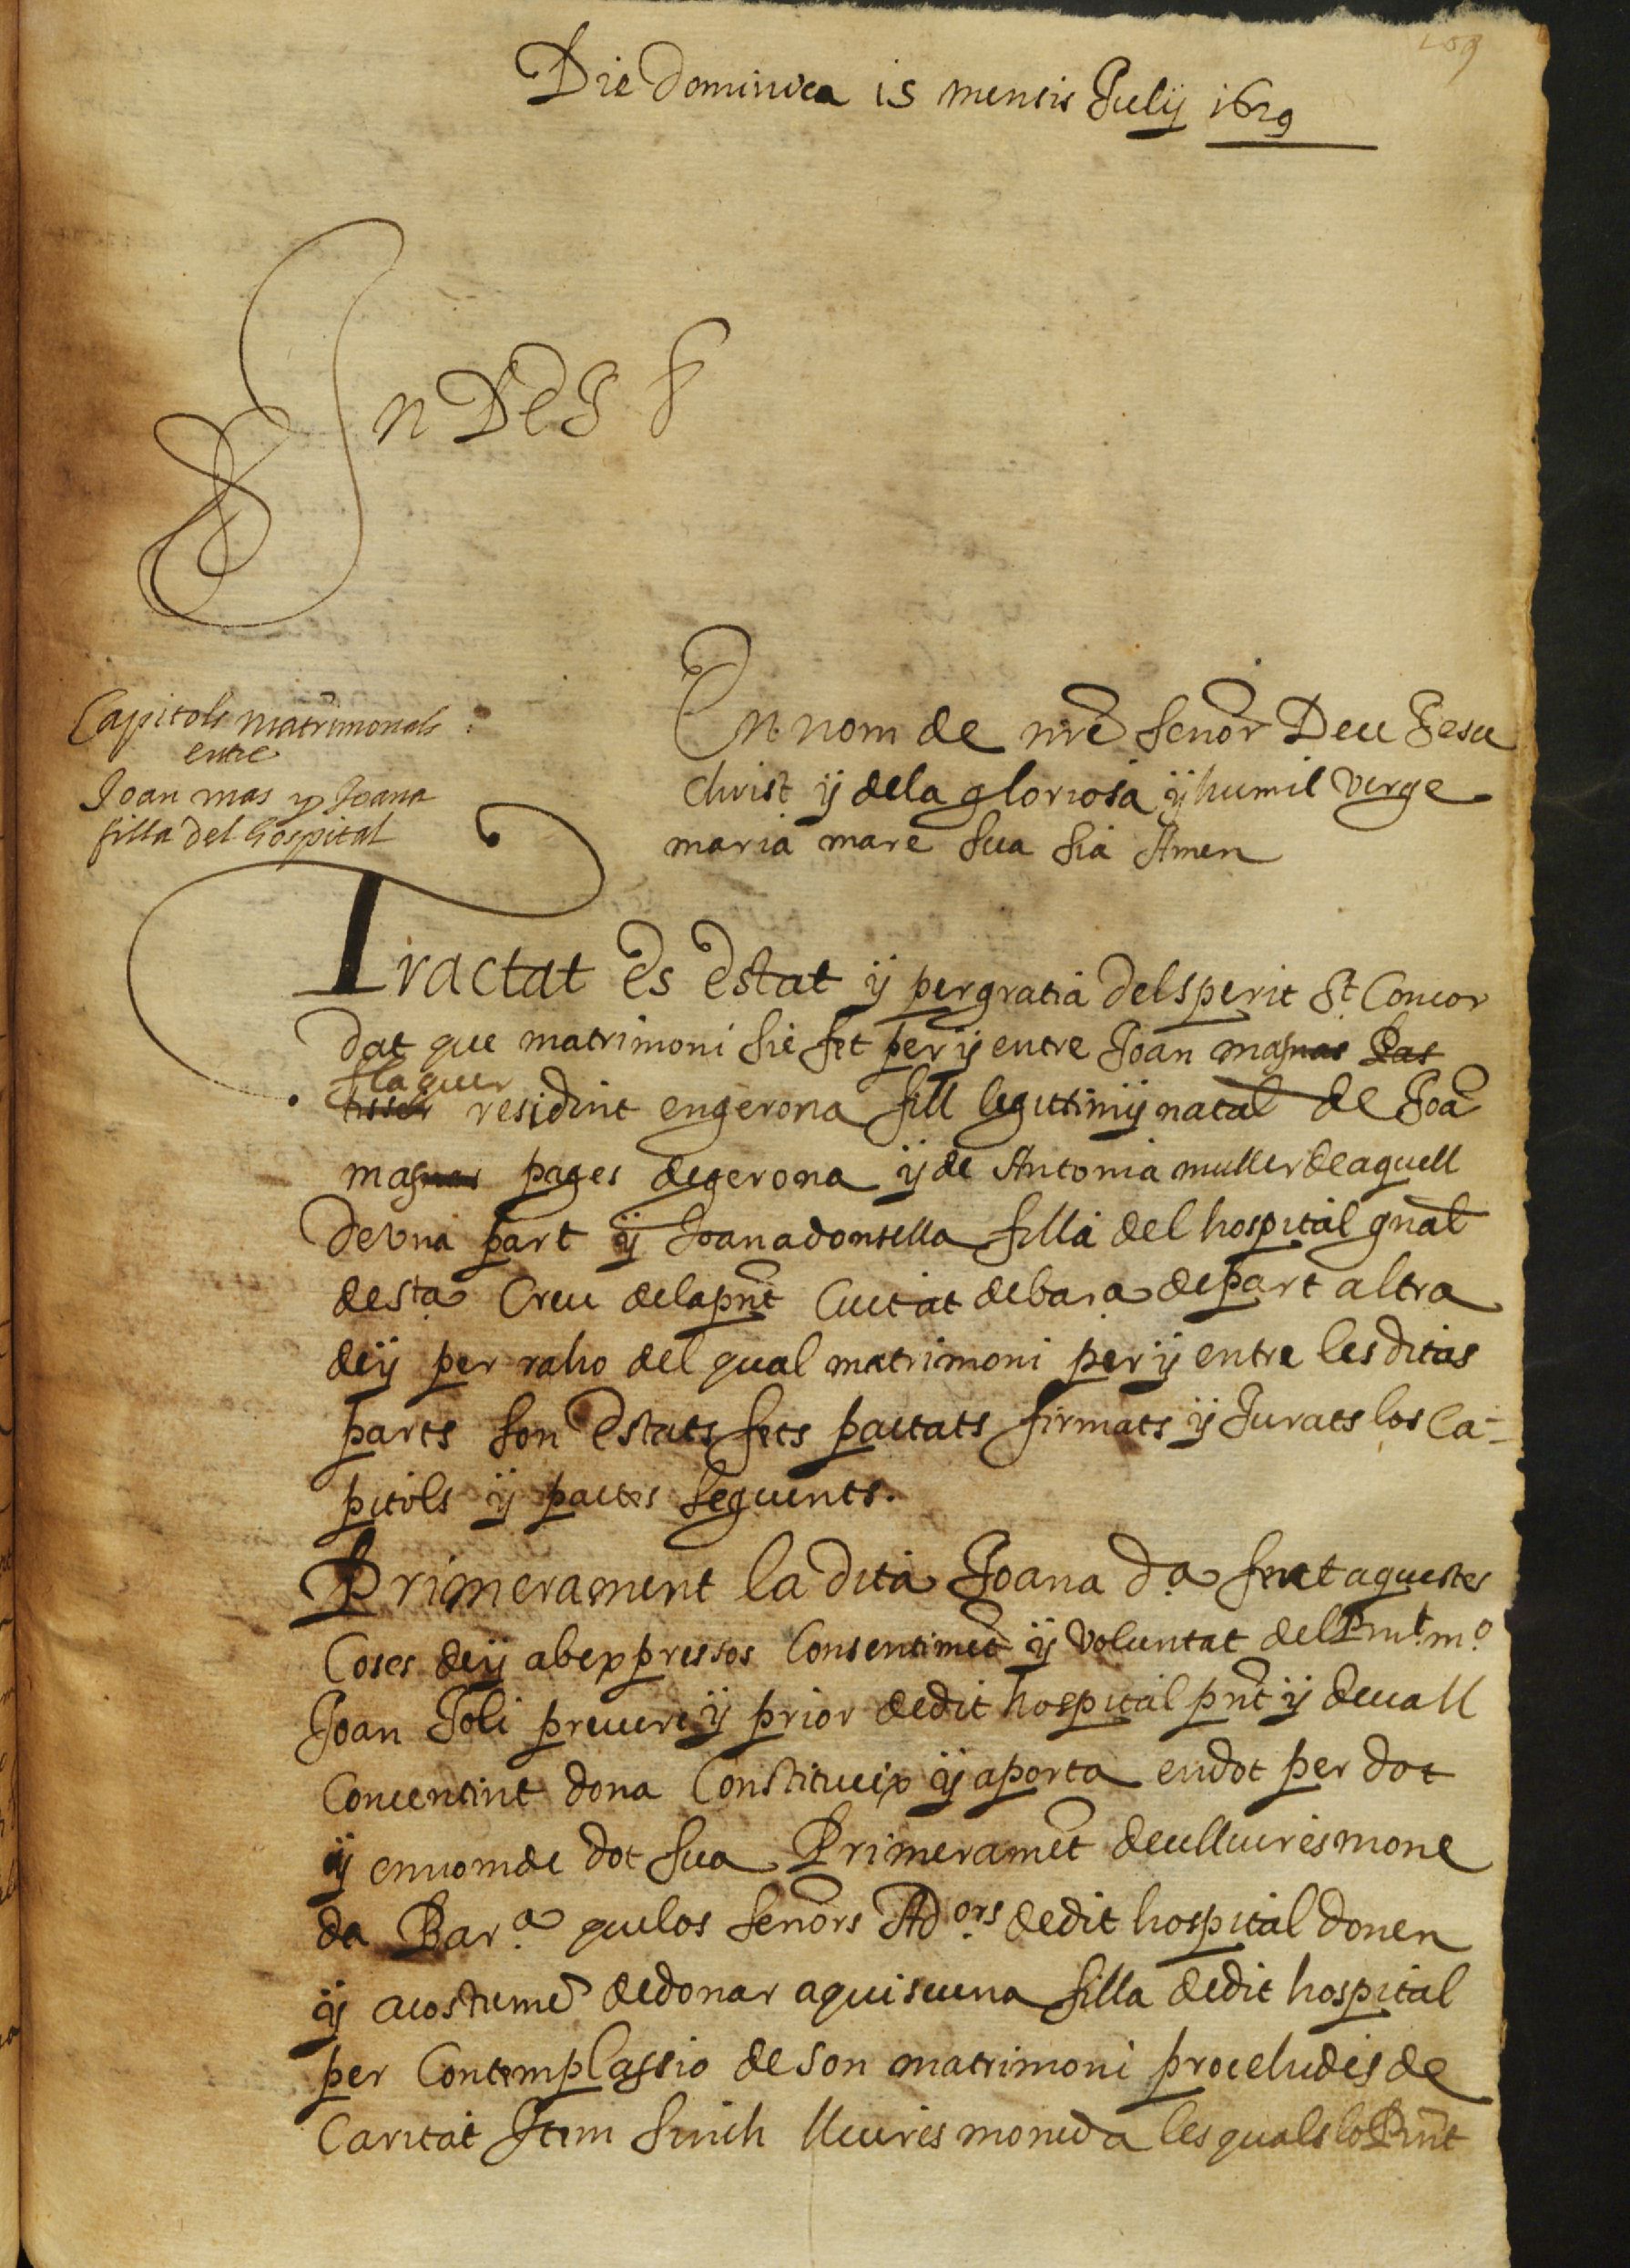 109
Die Dominica 15 mensis Julij 1629
In Dei
Capitols matrimonials
entre
Joan mas y Joana
filla del hospital
En nom de nre señor Deu Jesu
christ ÿ dela gloriosa ÿ humil verge
maria mare sua sia Amen
Tractat es estat ÿ per gratia del sperit St Concor
dat que matrimoni sie fet per ÿ entre Joan masnas Pas
flaquer
tisser residint en gerona fill legittim ÿ natal de Joā
masnas pages de gerona ÿ de Antonia muller de aquell
de una part ÿ Joana donsella filla del hospital gnāl
de sta Creu dela pn̄t Ciutat de bar.a de part altra
de ÿ per raho del qual matrimoni per ÿ entre les ditas
parts son estats fets pactats firmats ÿ Jurats los Ca-
pitols ÿ pactes seguents.
Primerament la dita Joana d.a fent aquestes
Coses de ÿ ab exppressos Consentimēt ÿ voluntat del Rnt. m.o
Joan Joli prevere ÿ prior de dit hospital pn̄t ÿ devall
Concentint dona Constitueix ÿ aporta en dot per dot
ÿ en nom de dot sua Primeramēt deu lliures mone
da Bar.a que los señors Ad.ors de dit hospital donen
ÿ acostumē de donar a quiscuna filla de dit hospital
per Contemplassio de son matrimoni procehides de
Caritat Item sinch lliures moneda les quals lo Rn̄t